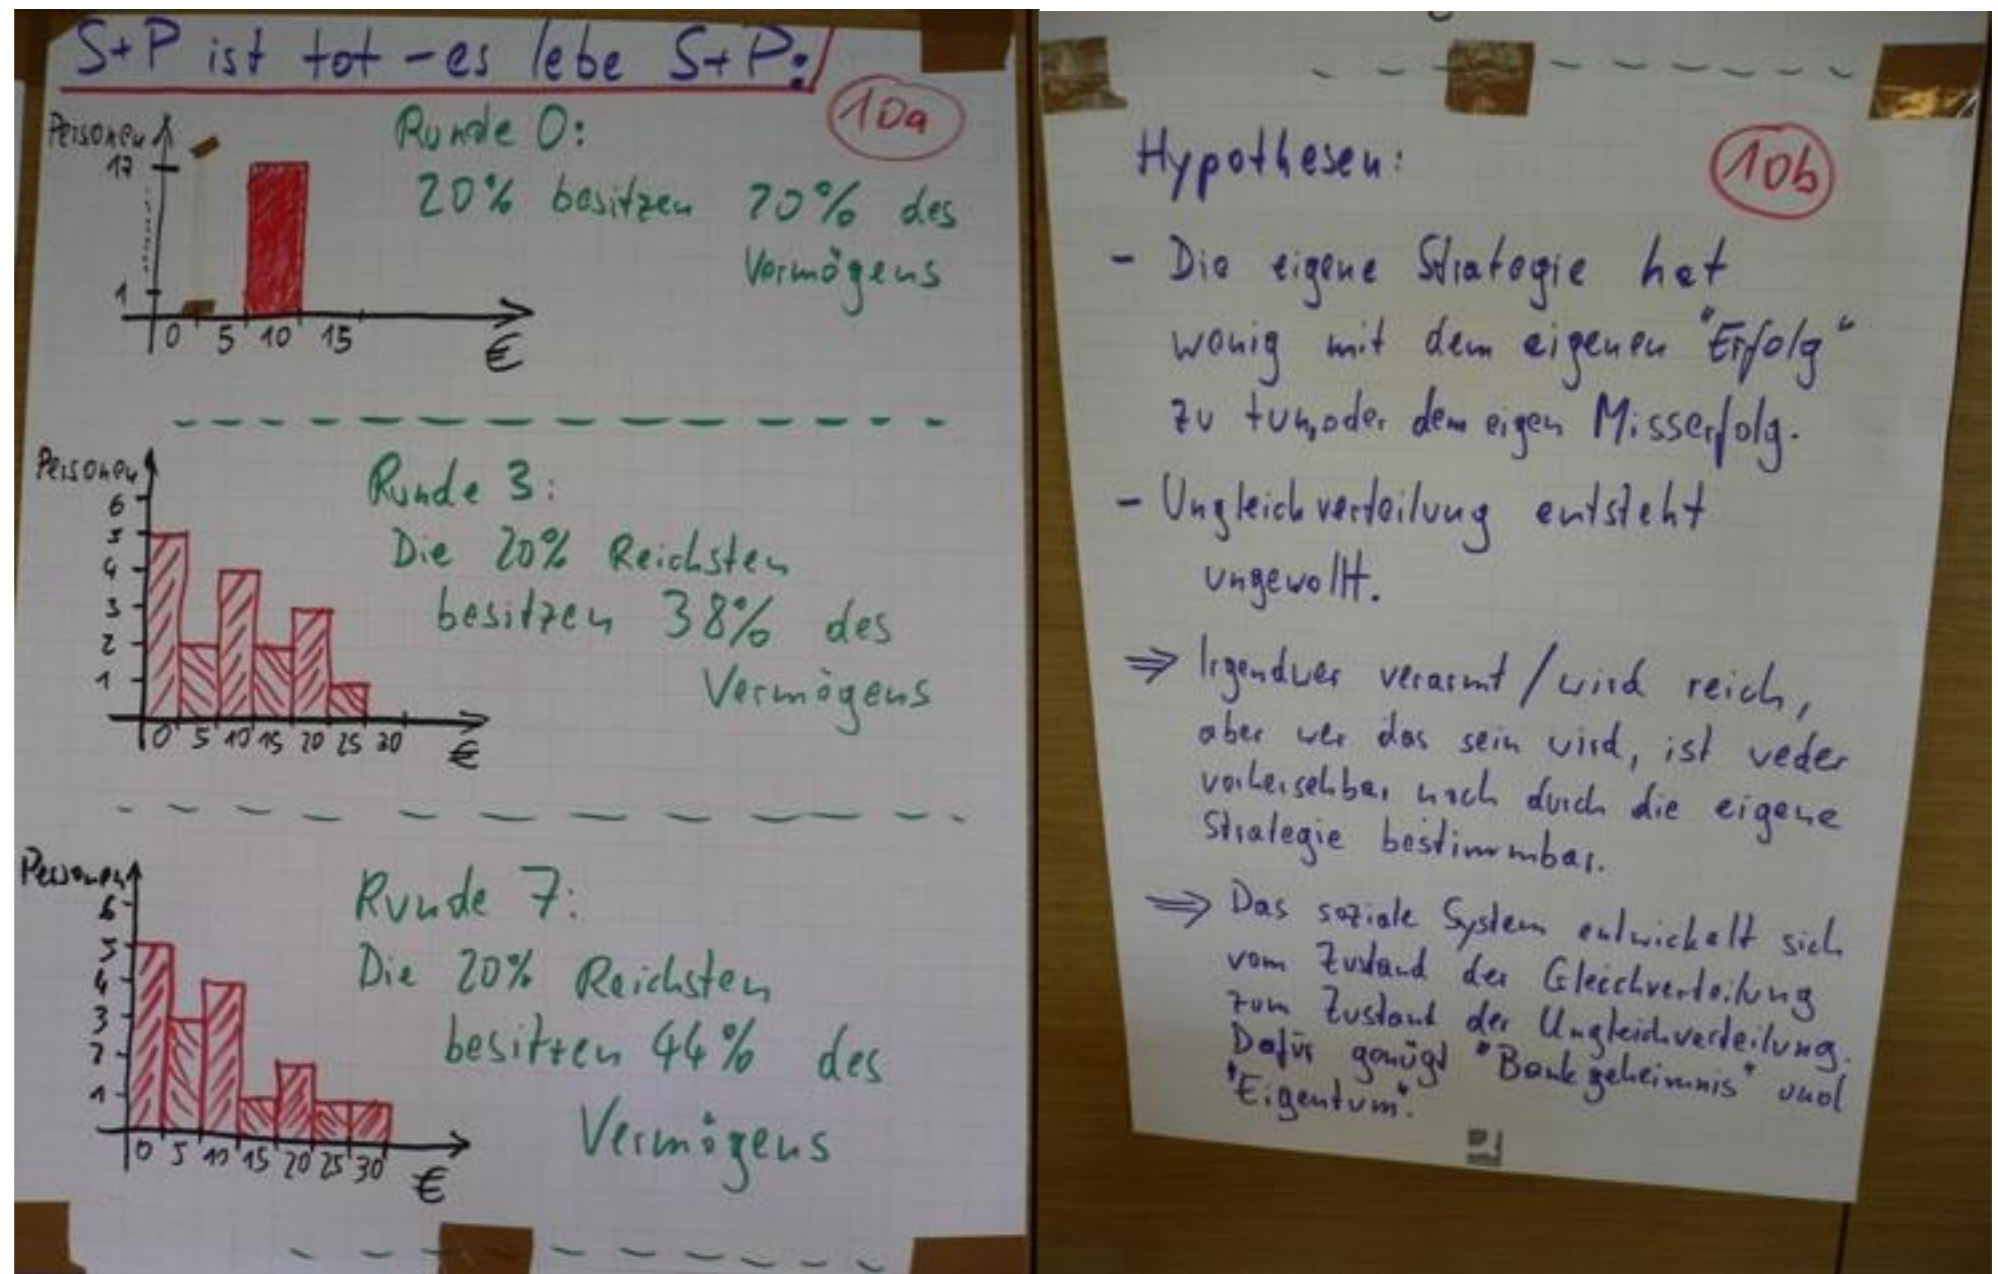 S+P ist tot – es lebe S+P!
10a
Personen
17
1
0 5 10 15
€
Runde 0:
20% besitzen 20% des
Vermögens
Personen
6
5
4
3
2
1
0 5 10 15 20 25 30
€
Runde 3:
Die 20% Reichsten
besitzen 38% des
Vermögens
Personen
6
5
4
3
2
1
0 5 10 15 20 25 30
€
Runde 7:
Die 20% Reichsten
besitzen 44% des
Vermögens
10b
Hypothesen:
- Die eigene Strategie hat
wenig mit dem eigenen "Erfolg"
zu tun, oder dem eigen Misserfolg.
- Ungleichverteilung entsteht
ungewollt.
⇒ Irgendwer verarmt / wird reich,
aber wer das sein wird, ist weder
vorhersehbar noch durch die eigene
Strategie bestimmbar.
⇒ Das soziale System entwickelt sich
vom Zustand der Gleichverteilung
zum Zustand der Ungleichverteilung.
Dafür genügt "Bankgeheimnis" und
"Eigentum".